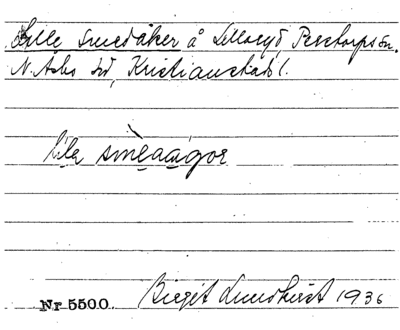 Lille Smedåker å Lillaryd Perstorps sn.
N. Åsbo hd, Kristianstads l.
lila smèaågor
Birgit Lundkvist 1936
Nr 5500.